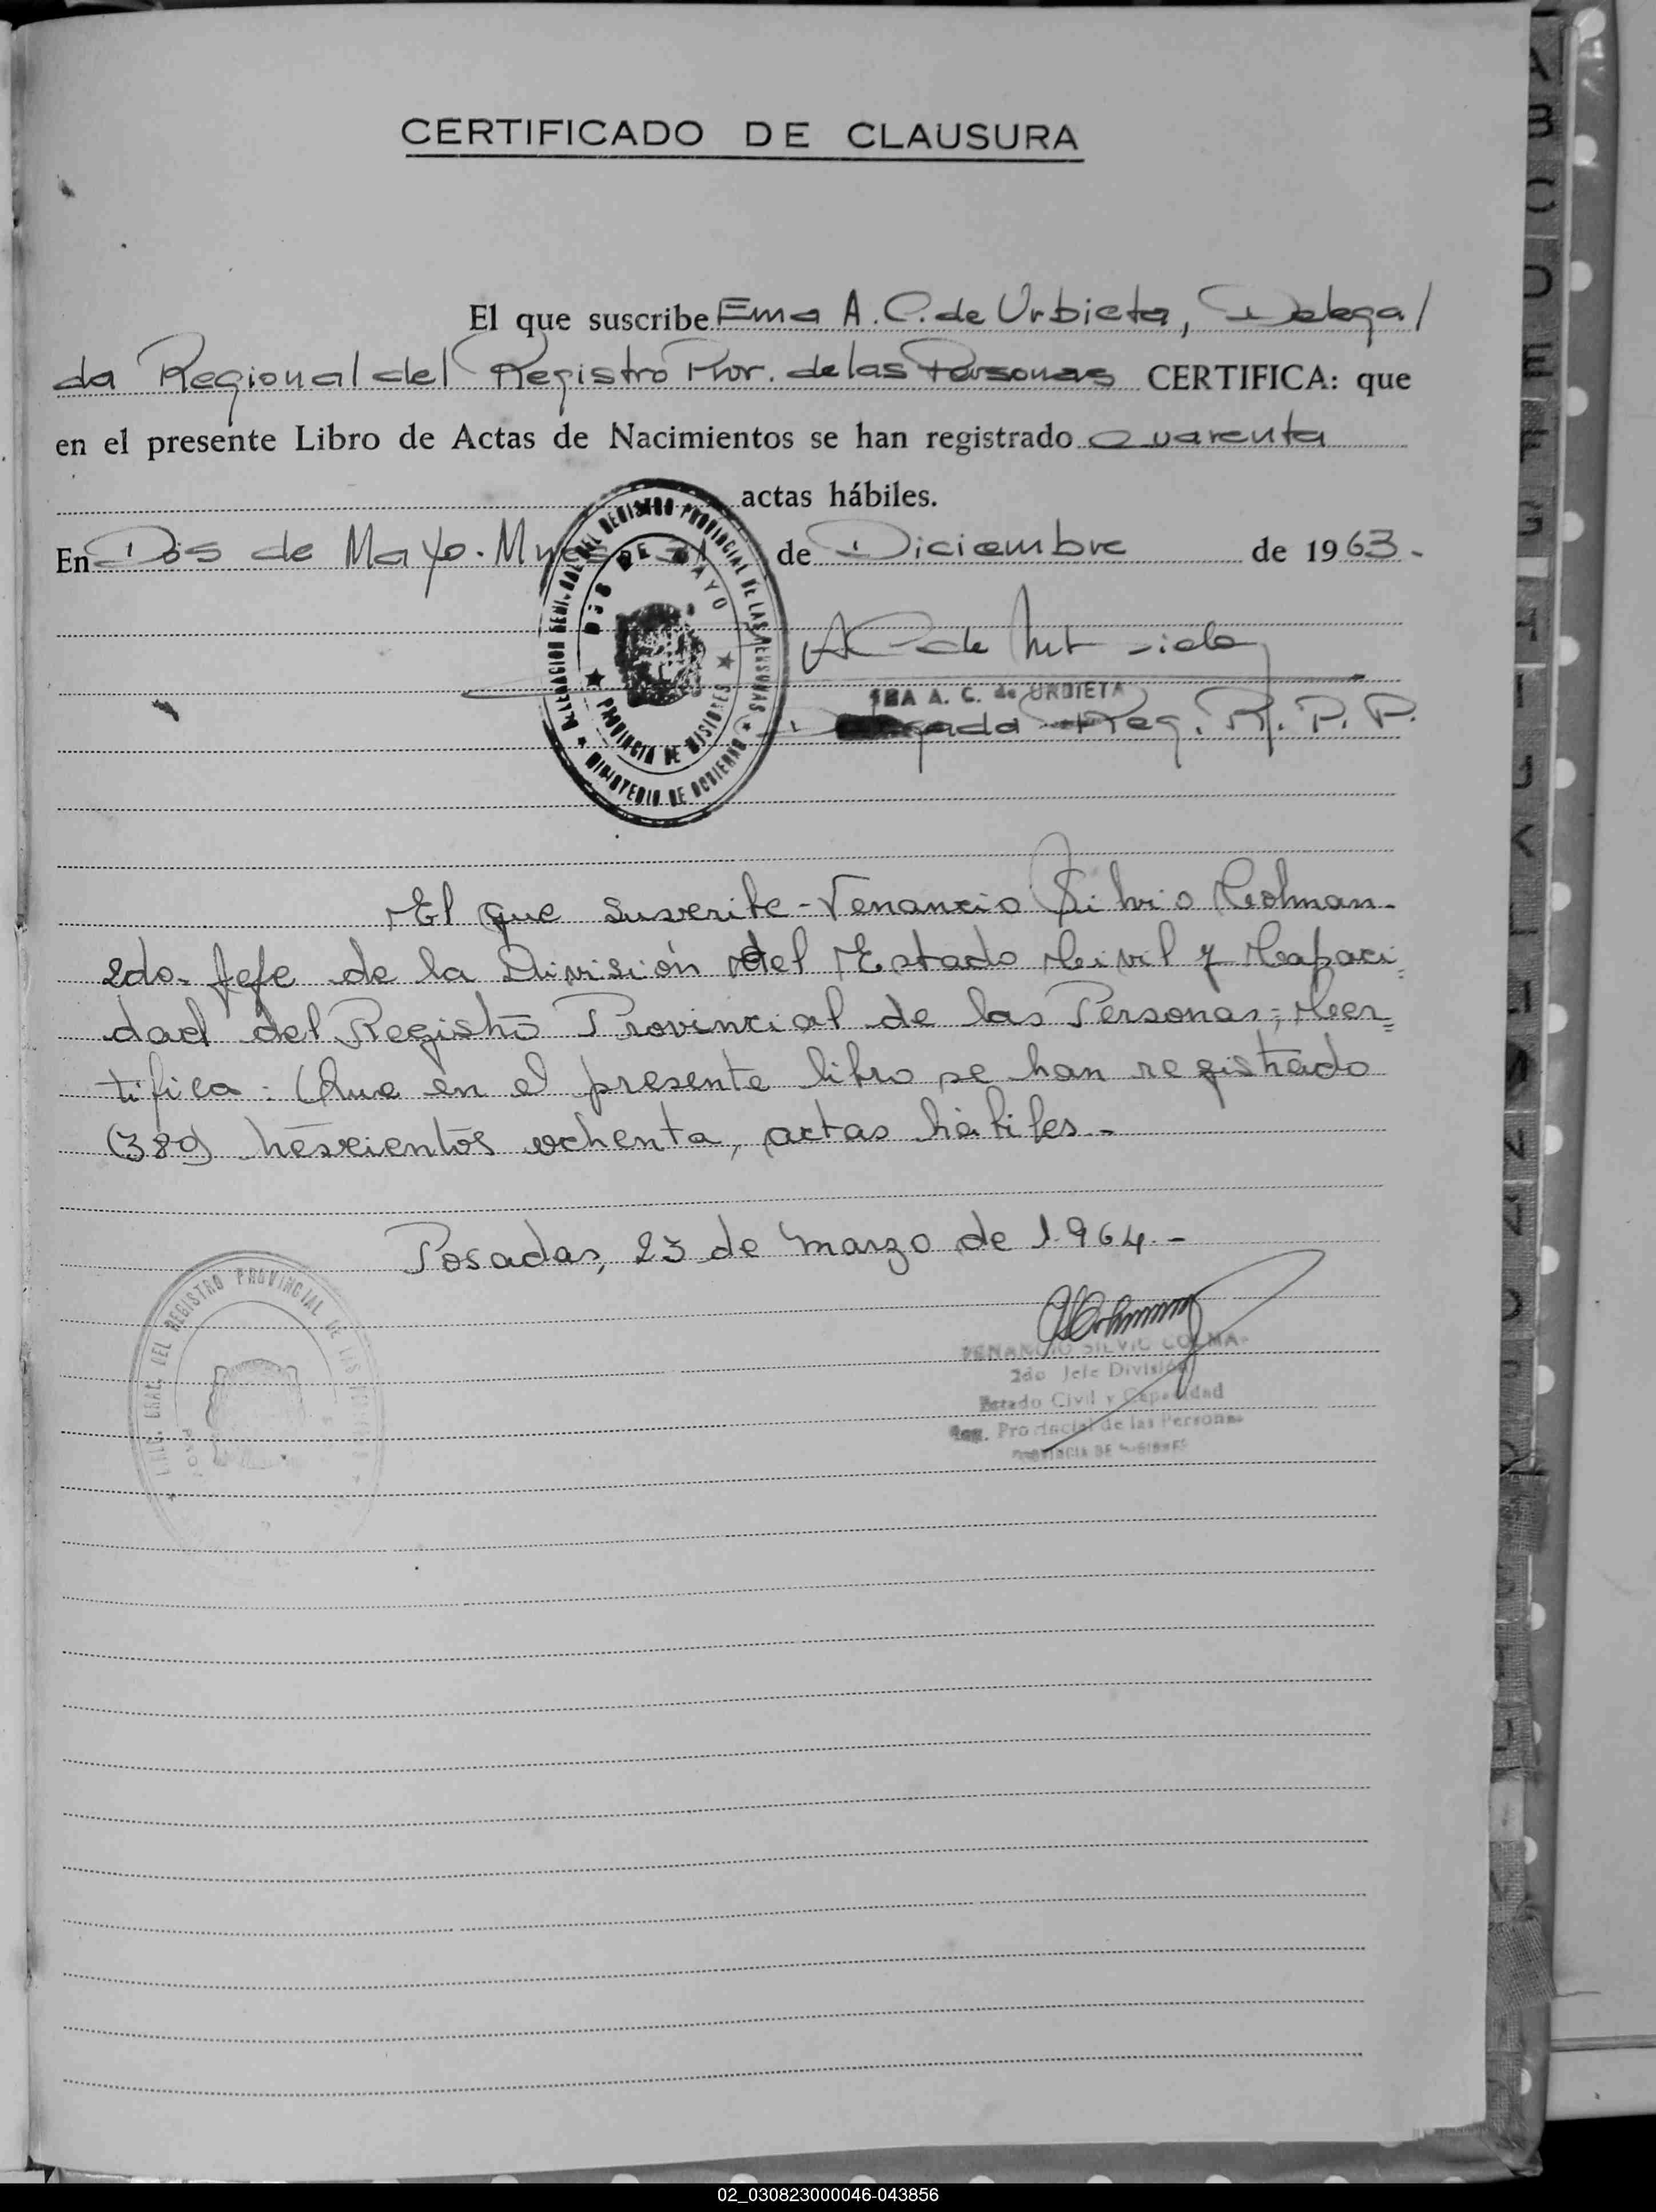 CERTIFICADO DE CLAUSURA
El que suscribe Ema A. C. de Urbieta, Delega/
da Regional del Registro Prov. de las Personas CERTIFICA: que
en el presente Libro de Actas de Nacimientos se han registrado Cuarenta
actas hábiles.
En Dos de Mayo. Mnes 31 de Diciembre de 1963.-
DELEGACION REGIONAL DEL REGISTRO PROVINCIAL DE LAS PERSONAS
DOS DE MAYO
PROVINCIA DE MISIONES
MINISTERIO DE GOBIERNO
A. C. de URBIETA
Reg. R. P. P.
El que suscribe - Venancio Silvio Colman-
2do. Jefe de la División del Estado Civil y Capaci=
dad del Registro Provincial de las Personas; Cer=
tifica: Que en el presente libro se han registrado
(380) trescientos ochenta, actas hábiles.-
Posadas, 23 de Marzo de 1964.-
GRAL. DEL REGISTRO PROVINCIAL DE LAS PERSONAS
VENANCIO SILVIO COLMAN
2do Jefe División
Estado Civil y Capacidad
Reg. Provincial de las Personas
PROVINCIA DE MISIONES
A
B
C
D
E
F
G
H
I
J
K
L
02_030823000046-043856